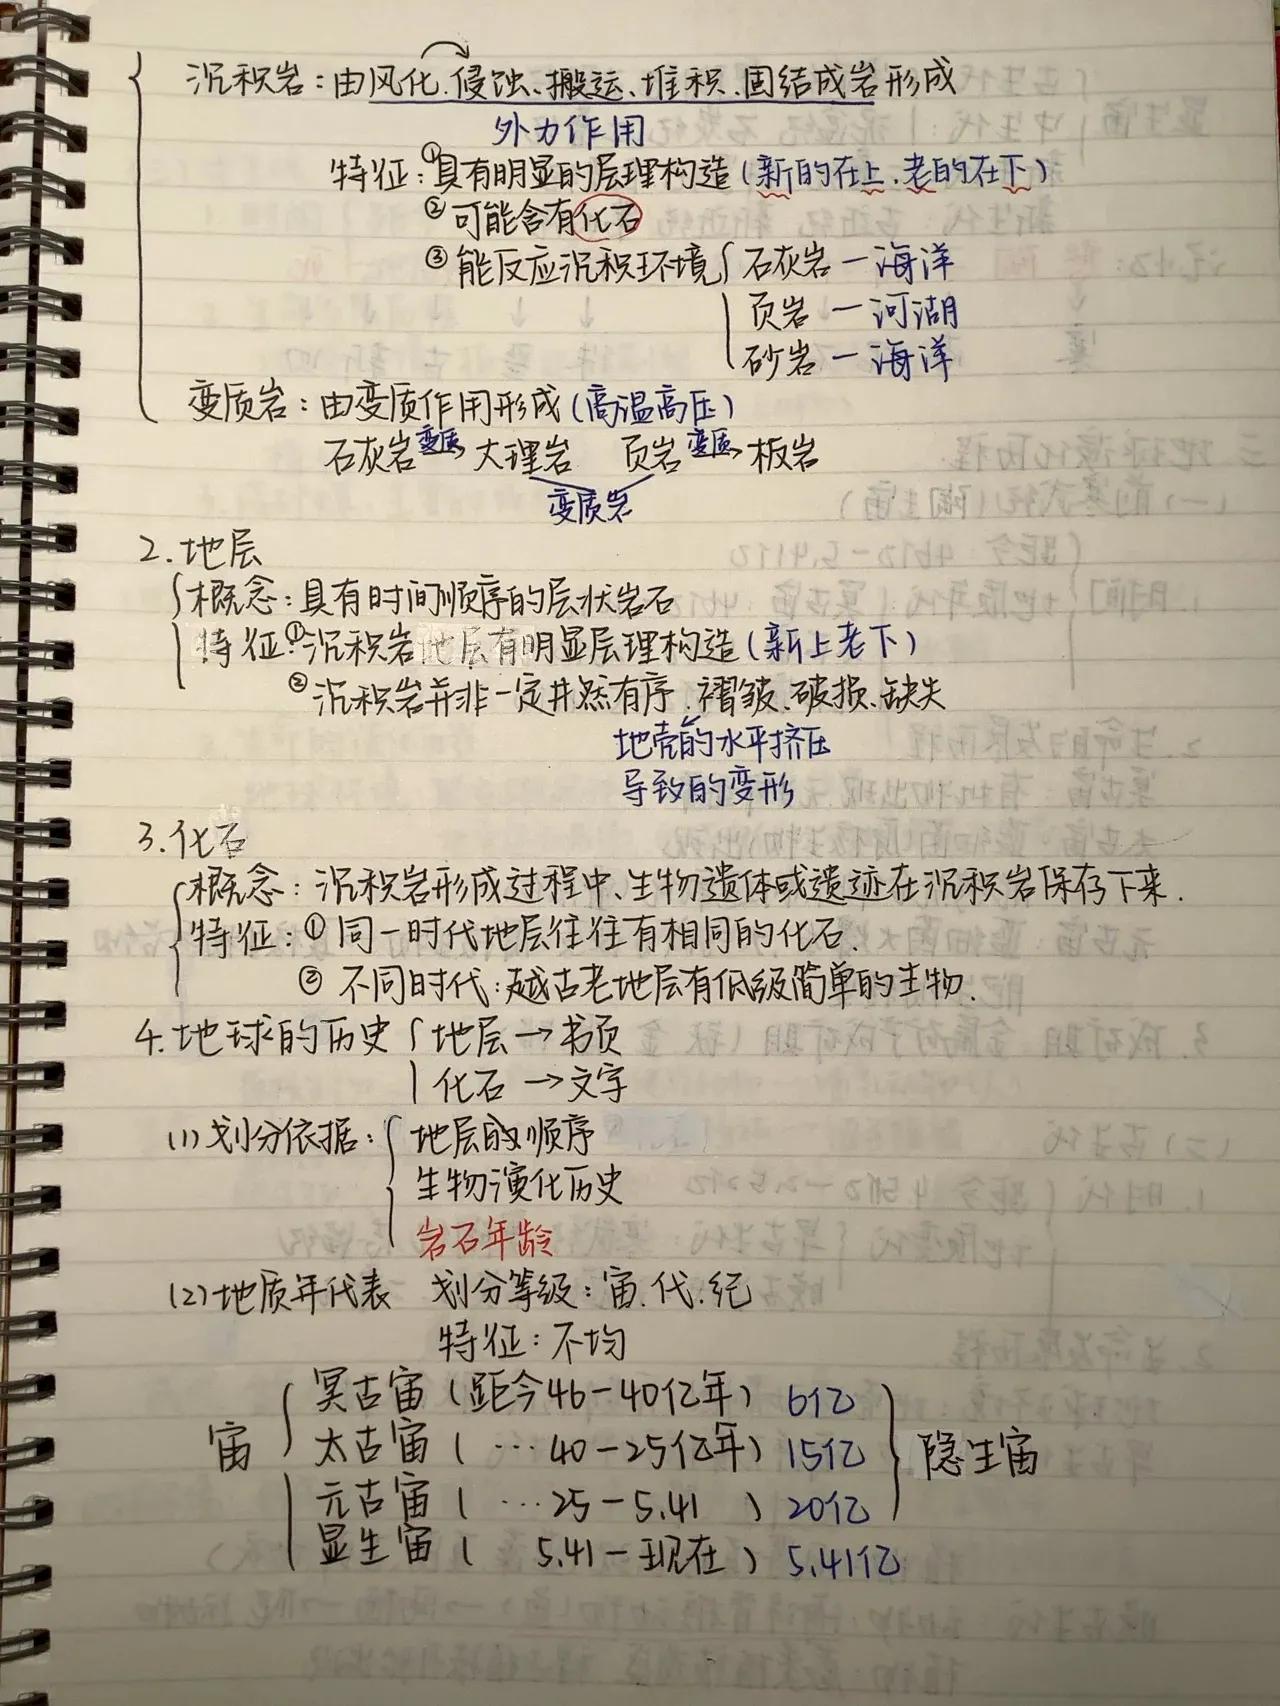 沉积岩：由风化、侵蚀、搬运、堆积、固结成岩形成
外力作用
特征：①具有明显的层理构造（新的在上、老的在下）
②可能含有化石
③能反应沉积环境 石灰岩—海洋
页岩—河湖
砂岩—海洋
变质岩：由变质作用形成（高温高压）
石灰岩 变质→ 大理岩 页岩 变质→ 板岩
变质岩
2.地层
概念：具有时间顺序的层状岩石
特征：①沉积岩地层有明显层理构造（新上老下）
②沉积岩并非一定井然有序、褶皱、破损、缺失
地壳的水平挤压
导致的变形
3.化石
概念：沉积岩形成过程中、生物遗体或遗迹在沉积岩保存下来.
特征：①同一时代地层往往有相同的化石.
②不同时代：越古老地层有低级简单的生物.
4.地球的历史 地层→书页
化石→文字
(1)划分依据：地层的顺序
生物演化历史
岩石年龄
(2)地质年代表 划分等级：宙、代、纪
特征：不均
冥古宙（距今46-40亿年）6亿
宙 太古宙（…40-25亿年）15亿 隐生宙
元古宙（…25-5.41）20亿
显生宙（5.41-现在）5.41亿